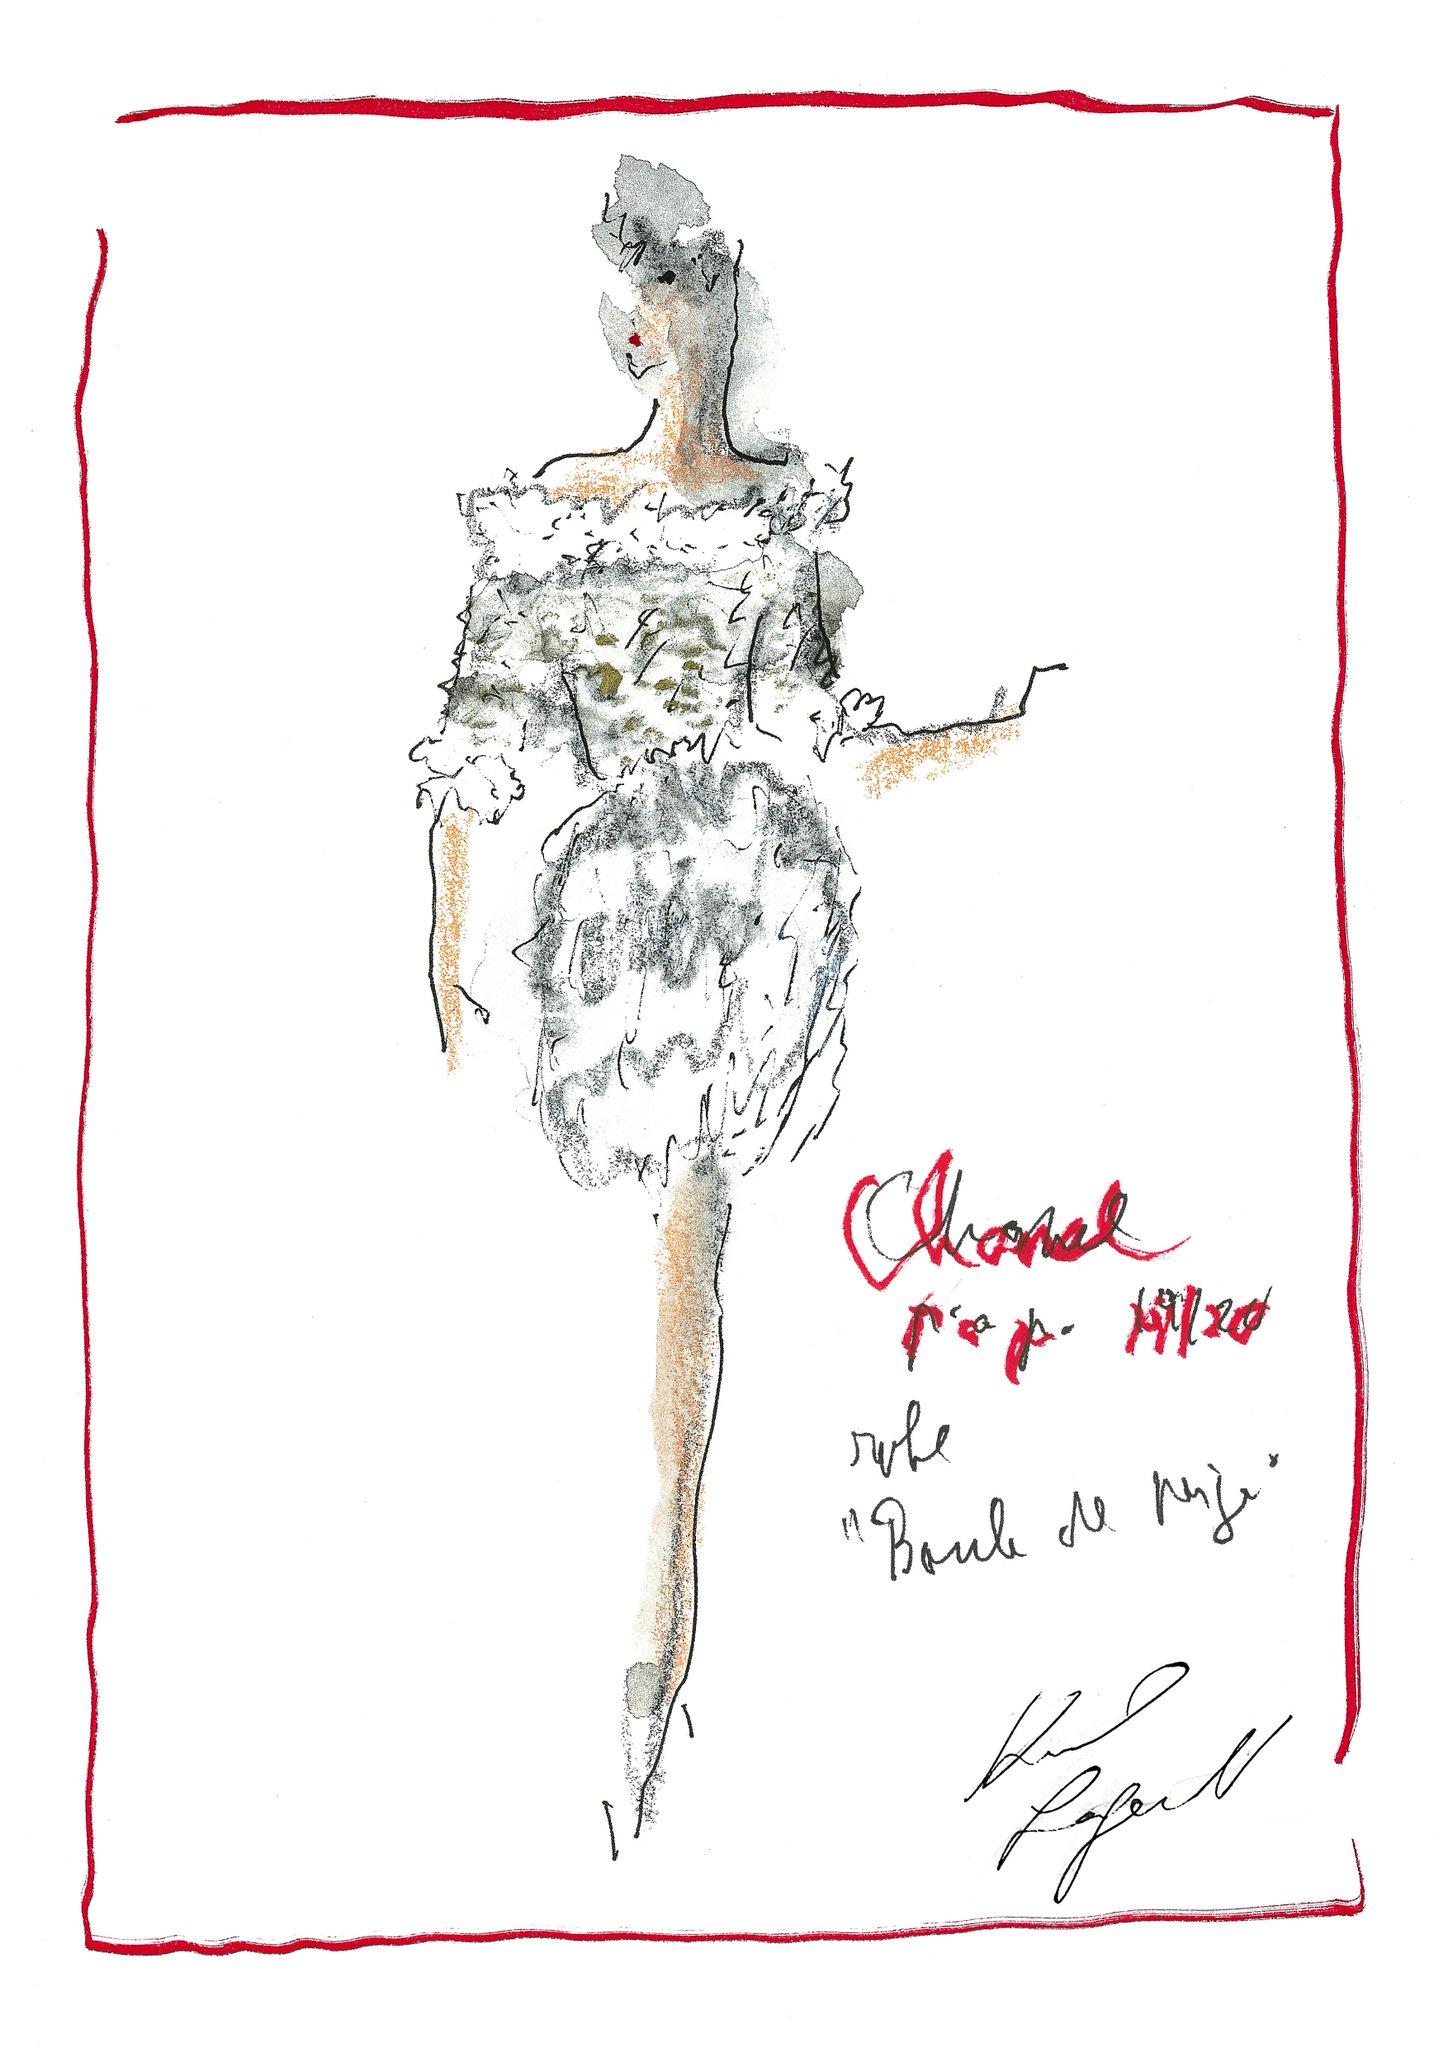 Chanel
p. a p. 19/20
robe
"Boule de neige"
Karl
Lagerfeld